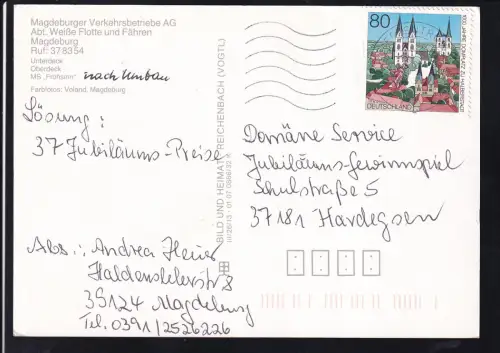 Magdeburger Verkehrsbetriebe AG
Abt. Weiße Flotte und Fähren
Magdeburg
Ruf: 37 83 54
Unterdeck
Oberdeck
MS „Frohsinn" nach Umbau
Farbfotos: Voland, Magdeburg
Lösung:
37 Jubiläums-Preise
Abs.: Andrea Heuer
Haldensleberstr 8
39124 Magdeburg
Tel. 0391/2526226
BILD UND HEIMAT REICHENBACH (VOGTL)
80
1000 JAHRE DOMPLATZ ZU HALBERSTADT
DEUTSCHLAND
Domäne Service
Jubiläums-Gewinnspiel
Schulstraße 5
37181 Hardegsen